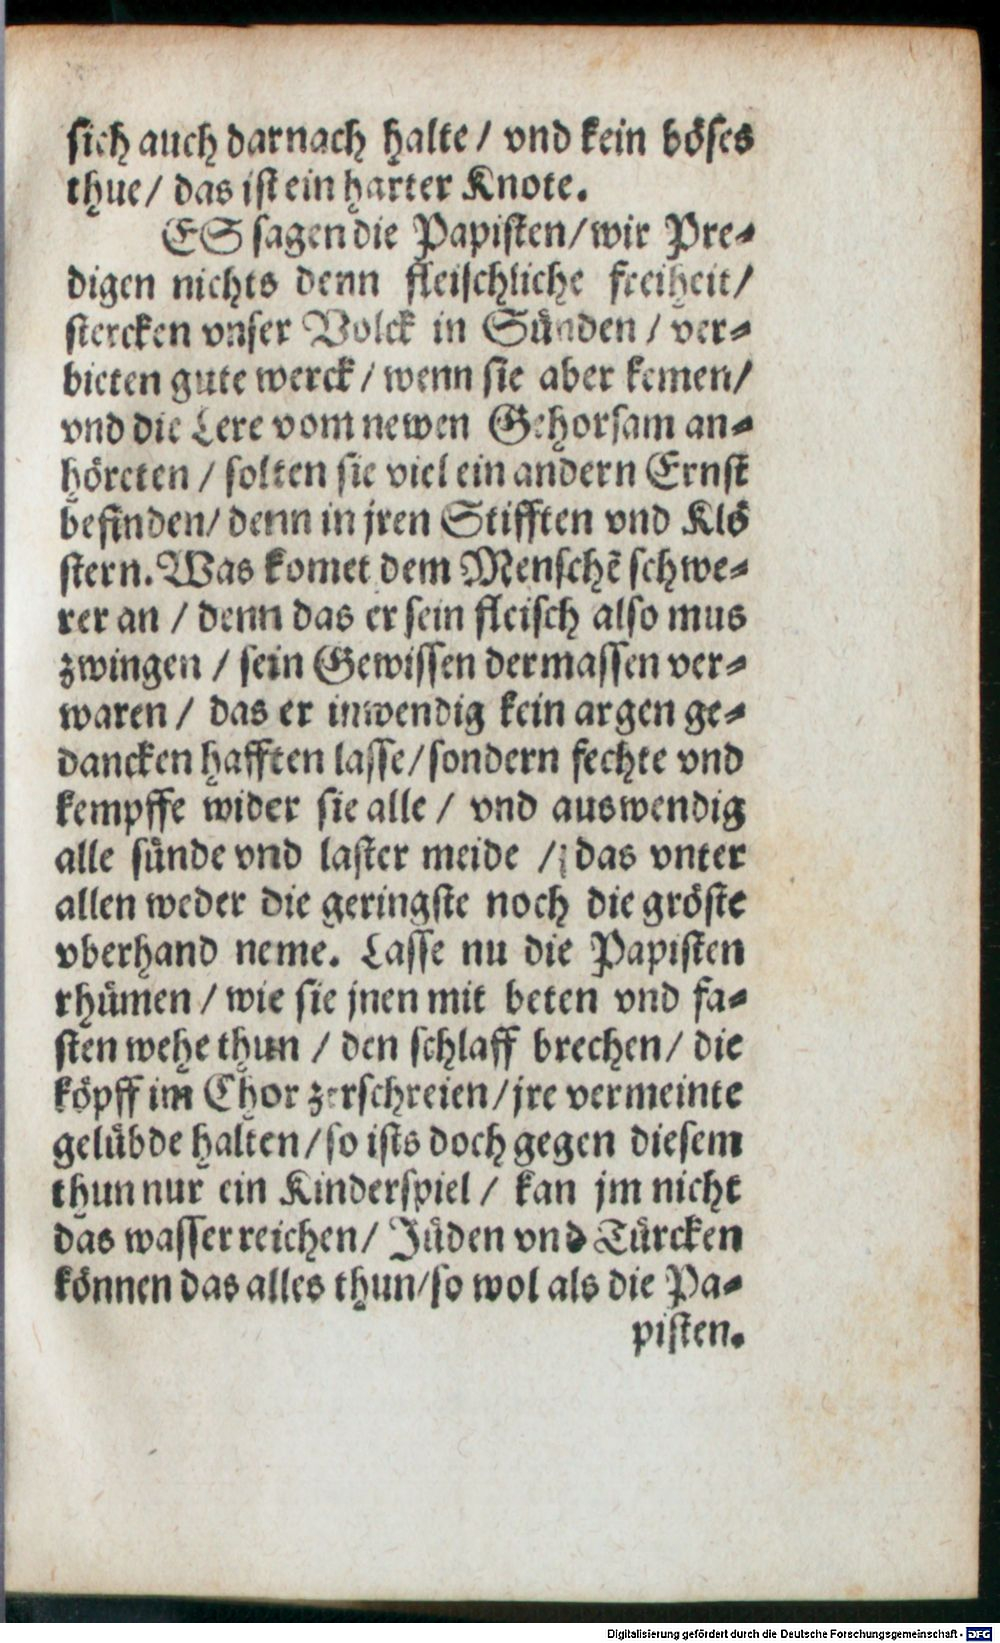 sich auch darnach halte / vnd kein böses
thue / das ist ein harter Knote.
ES sagen die Papisten / wir Pre-
digen nichts denn fleischliche freiheit /
stercken vnser Volck in Sünden / ver-
bieten gute werck / wenn sie aber kemen /
vnd die Lere vom newen Gehorsam an-
höreten / solten sie viel ein andern Ernst
befinden / denn in jren Stifften vnd Klö
stern. Was komet dem Menschẽ schwe-
rer an / denn das er sein fleisch also mus
zwingen / sein Gewissen dermassen ver-
waren / das er inwendig kein argen ge-
dancken hafften lasse / sondern fechte vnd
kempffe wider sie alle / vnd auswendig
alle sünde vnd laster meide / das vnter
allen weder die geringste noch die gröste
vberhand neme. Lasse nu die Papisten
rhümen / wie sie jnen mit beten vnd fa-
sten wehe thun / den schlaff brechen / die
köpff im Chor zerschreien / jre vermeinte
gelübde halten / so ists doch gegen diesem
thun nur ein Kinderspiel / kan jm nicht
das wasser reichen / Jüden vnd Türcken
können das alles thun / so wol als die Pa-
pisten.
Digitalisierung gefördert durch die Deutsche Forschungsgemeinschaft - DFG